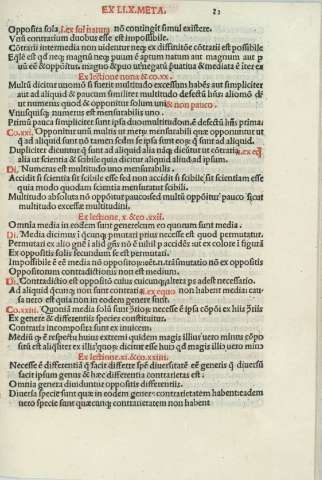 EX LI.X.META. 82
Opposita sola. Lex sol natum nō contingit simul existere.
Unū contrarium duobus esse est impossibile.
Cōtrarii intermedia non uidentur neq; ex distinctōe cōtrarii est possibile
Eqle est qd neq; magnū neq; puum ē aptum natum aut magnum aut p
uū esse & ē oppositum. magno & puo ut negatū puatiua & mediata ē iter ex
Ex lectione nona & co.xx.
Multū dicitur unomō si fuerit multitudo excessum habēs aut simpliciter
aut ad aliquid & paucum similiter multitudo defectū hñs aliomō dī
ut numerus quod & opponitur solum uni & non pauco.
Unusquisq; numerus est mensurabilis uno.
Primū pauca simpliciter sunt ipsa duo multitudo.n.ē defectū hñs prima
Co.xxi. Opponitur unū multis ut metrū mensurabili quæ opponuntur ut
q ad aliquid sunt nō tamen secundum se ipsa sunt eorum q sunt ad aliquid.
Dupliciter dicuntur q sunt ad aliquid alia naq; dicitur ut cōtraria
alia ut scientia & scibile quia dicitur aliquid aliud ad ipsum.
Numerus est multitudo uno mensurabilis.
Accidit si scientia sit scibile esse sed non accidit si scibile sit scientiam esse
quia modo quodam scientia mensuratur scibili.
Multitudo absoluta nō oppōitur pauco sed multū oppōitur pauco sicut
multitudo excessus multitudini.
Ex lectione, x & co.xxii.
Omnia media in eodem sunt genere cum eo quorum sunt media.
Media dicimus i quæcunq; pmutari prius necesse est quod permutatur.
Permutari ex alio gñe ī alid gñs nō ē nihil p accidēs ut ex colore ī figura
Ex oppositis solis secundum se est permutari.
Impossibile ē ēē media nō oppositorum eēt.n.trāsmutatio nō ex oppositis
Oppositorum contradictionis non est medium.
Contradictio est oppositō cuius cuicunq; altera ps adest necessario.
Ad aliquid quæcunq; non sunt contraria. Lex equo. non habent media: cau
sa uero est quia non in eodem genere sunt.
Co.xxiii. Quoniā media solū sunt cōtrariorum: necesse ē ipsa cōpōi ex hiis cōtrariis
Ex genere & differentiis species constituitur.
Contraria incomposita sunt ex inuicem.
Mediū quæ ē respectu huius extremi quidem magis illius uero minus cōpo
sitū est aliqualiter ex illis quorum dicitur esse huius qd magis illius uero minus
Ex lectione.xi.& co.xxiiii.
Necesse ē differentiā q facit differre spē diuersitatē eē generis q diuersū
facit ipsum genus & hæc differentia contrarietas est.
Omnia genera diuiduntur oppositis differentiis.
Diuersa specie sunt quæ in eodem genere contrarietatem habent: eadem
uero specie sunt quæcunq; contrarietatem non habent